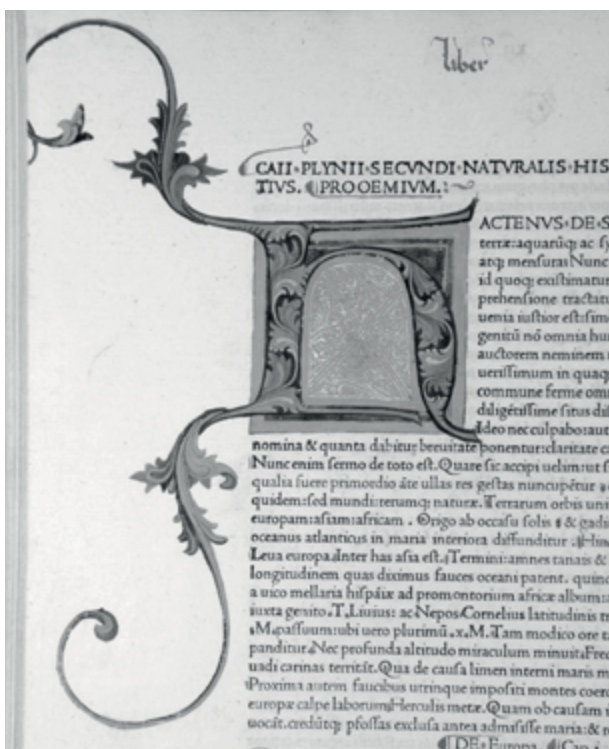 liber
CAII·PLYNII·SECVNDI·NATVRALIS·HIS
TIVS. PROOEMIVM.
H
ACTENVS·DE·S
terræ:aquarūq; ac sy
atq; mensuras Nunc
id quoq; existimatur
prehensione tractatu
uenia iustior est:sime
genitū nō omnia hum
auctorem neminem
uerissimum in quaq;
commune ferme om
diligētissime situs di
Ideo nec culpabo:aut
nomina & quanta dabitur breuitate ponentur:claritate ca
Nunc enim sermo de toto est. Quare sic accipi uelim:ut s
qualia fuere primordio āte ullas res gestas nuncupētur
quidem:sed mundi:rerumq; naturæ. Terrarum orbis uni
europam:asiam:africam. Origo ab occasu solis & gadi
oceanus atlanticus in maria interiora diffunditur. Hinc
Leua europa. Inter has asia est. Termini: amnes tanais &
longitudinem quas diximus fauces oceani patent. quinc
a uico mellaria hispāiæ ad promontorium africæ album:
iuxta genito. T. Liuius: ac Nepos Cornelius latitudinis tr
.M.passuum:ubi uero plurimū.x.M. Tam modico ore ta
panditur. Nec profunda altitudo miraculum minuit. Freq
uadi carinas territāt. Qua de causa limen interni maris m
Proxima autem faucibus utrinque impositi montes coerc
europæ calpe laborum Herculis metæ. Quam ob causam i
uocāt. credūtq; pfossas exclusa antea admisisse maria: &
DE Europa.